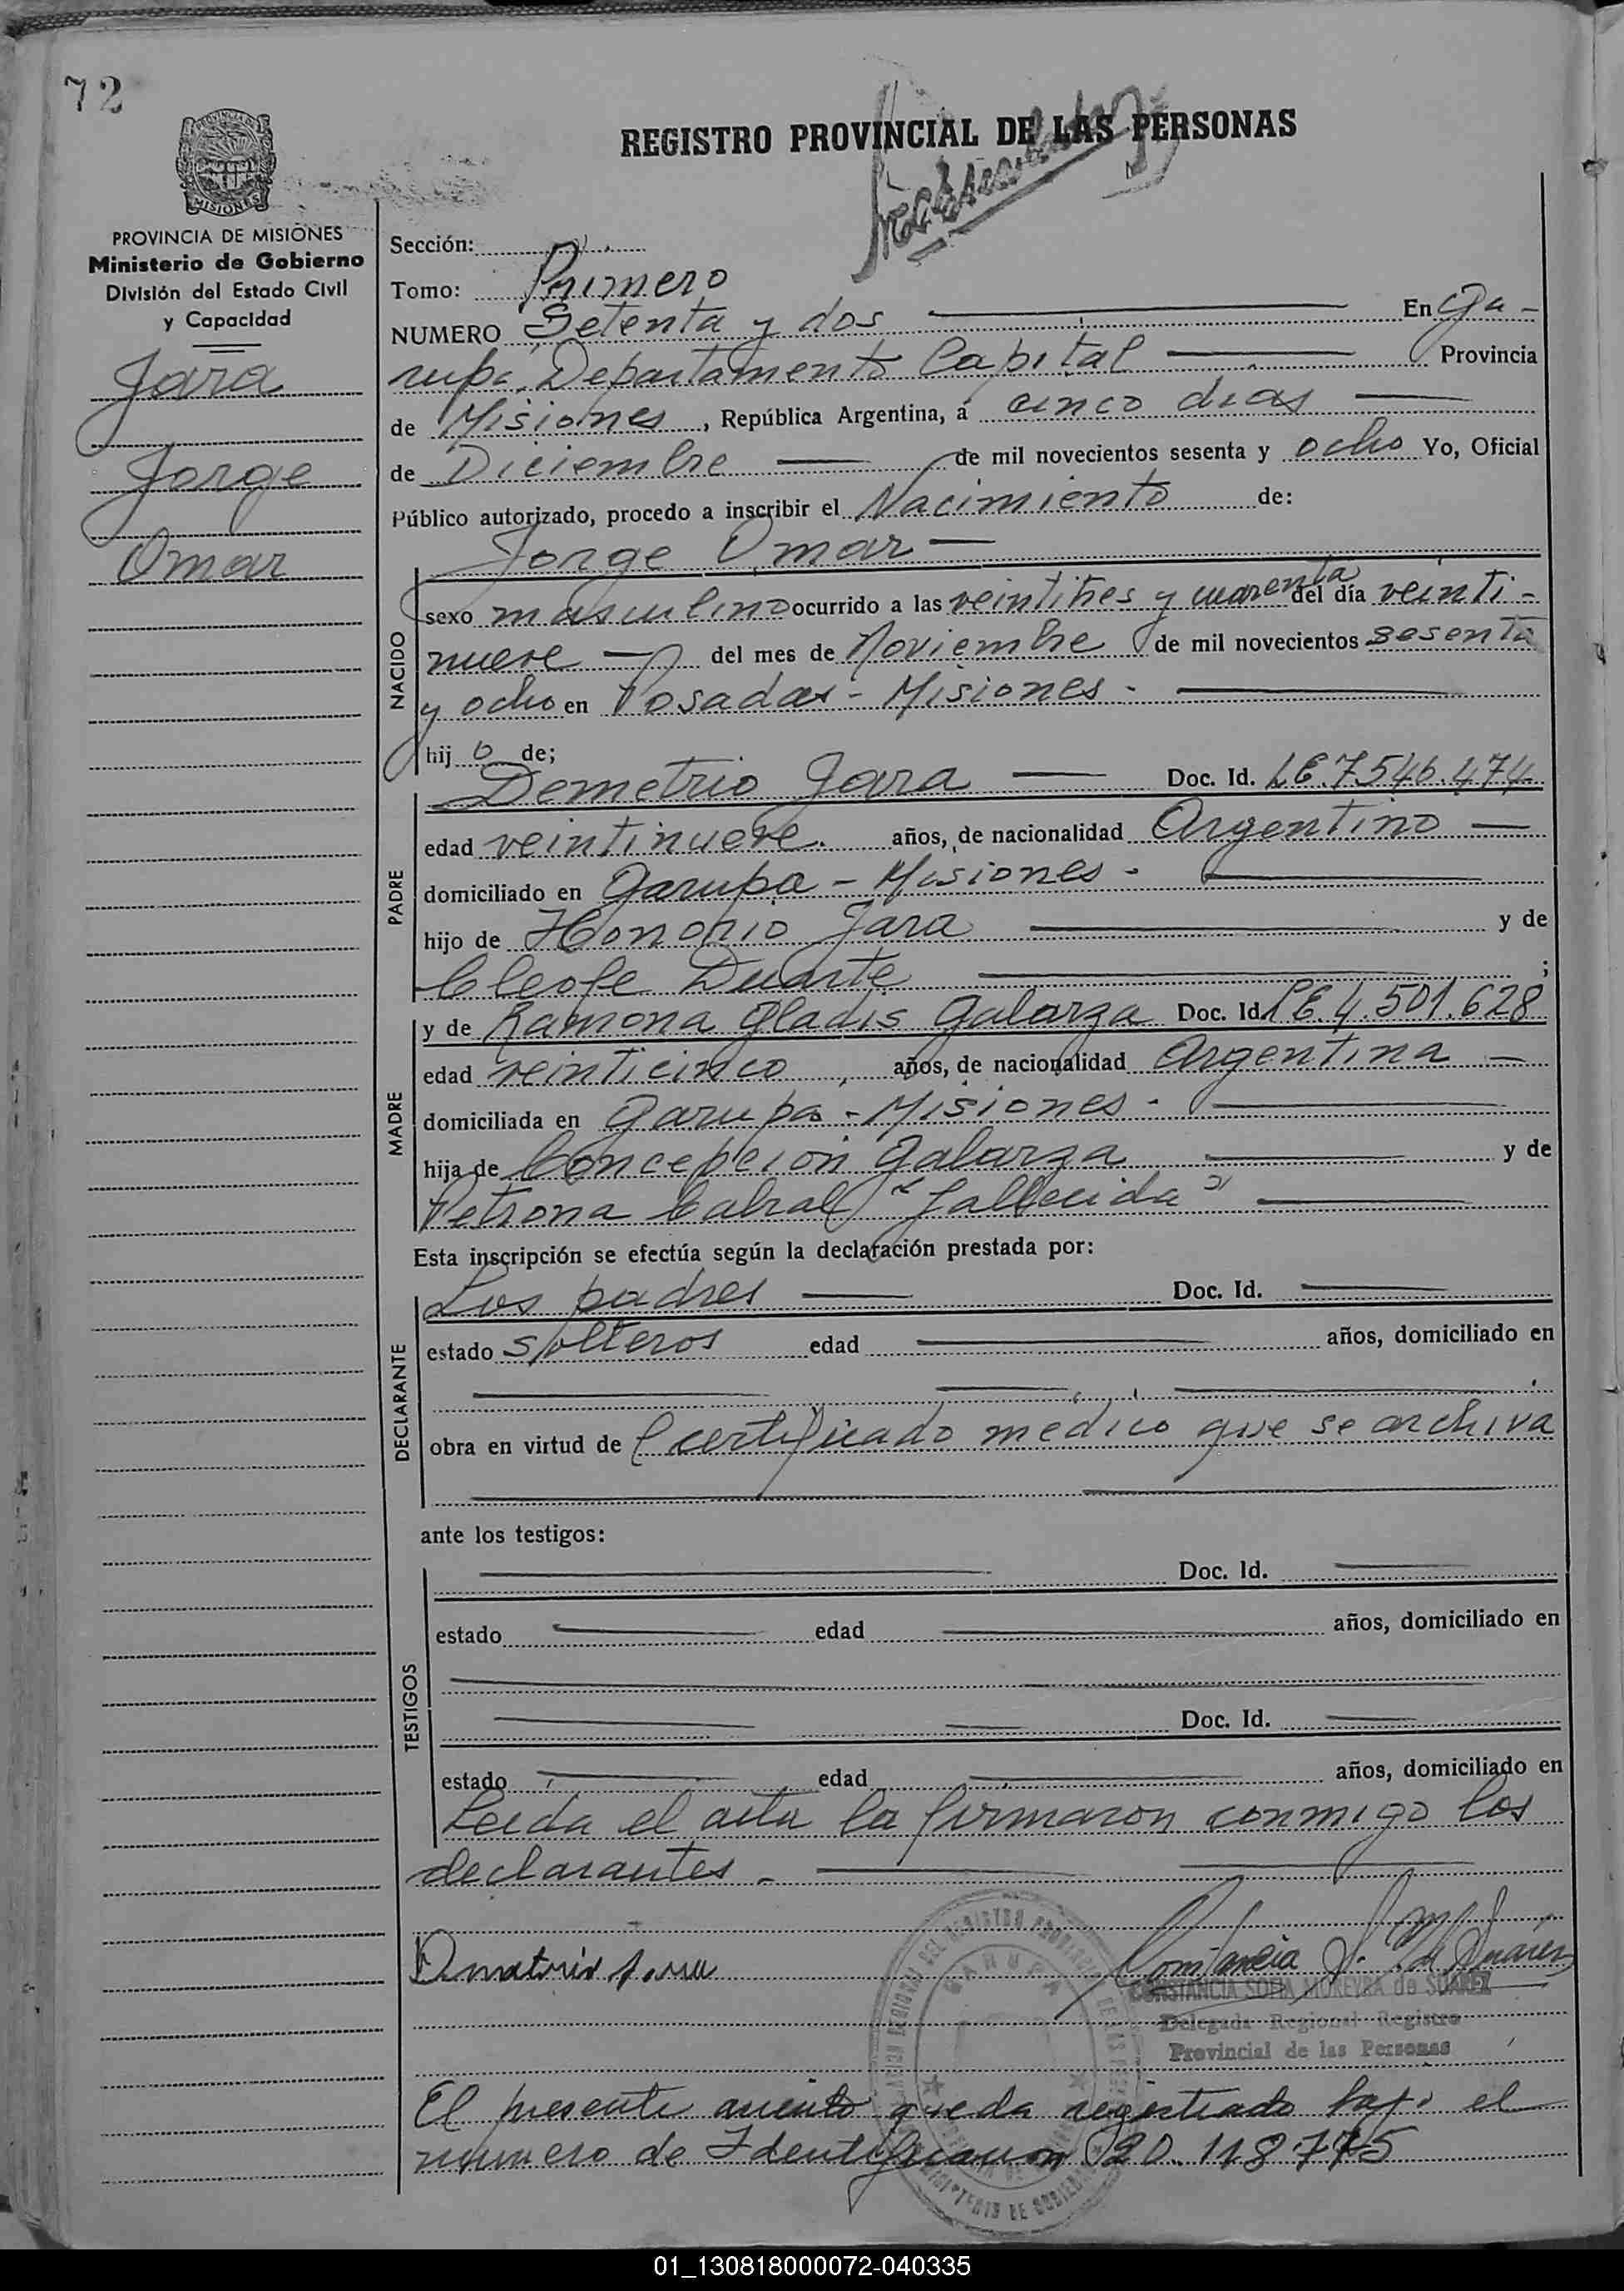 72
REGISTRO PROVINCIAL DE LAS PERSONAS
PROVINCIA DE MISIONES
Ministerio de Gobierno
División del Estado Civil
y Capacidad
Jara
Jorge
Omar
Sección:
Tomo: Primero
NUMERO Setenta y dos En Ga-
rupá, Departamento Capital Provincia
de Misiones, República Argentina, a cinco dias
de Diciembre de mil novecientos sesenta y ocho Yo, Oficial
Público autorizado, procedo a inscribir el Nacimiento de:
Jorge Omar
NACIDO
sexo masculino ocurrido a las veintitres y cuarenta del día veinti-
nueve del mes de Noviembre de mil novecientos sesenta
y ocho en Posadas - Misiones.
hij o de;
PADRE
Demetrio Jara Doc. Id. LE.7546.474
edad veintinueve. años, de nacionalidad Argentino
domiciliado en Garupa - Misiones.
hijo de Honorio Jara y de
Cleofe Duarte ;
MADRE
y de Ramona Gladis Galarza Doc. Id. LE.4.501.628
edad veinticinco, años, de nacionalidad Argentina
domiciliada en Garupa - Misiones.
hija de Concepcion Galarza y de
Petrona Cabral "fallecida"
Esta inscripción se efectúa según la declaración prestada por:
DECLARANTE
Los padres Doc. Id.
estado solteros edad años, domiciliado en
obra en virtud de certificado medico que se archiva
ante los testigos:
TESTIGOS
Doc. Id.
estado edad años, domiciliado en
Doc. Id.
estado edad años, domiciliado en
Leida el acta la firmaron conmigo los
declarantes.
Constancia S. M. de Suárez
CONSTANCIA SOFIA MOREYRA de SUAREZ
Delegada Regional Registro
Provincial de las Personas
GARUPA
El presente asiento queda registrado bajo el
numero de Identificacion 20.118.775
01_130818000072-040335